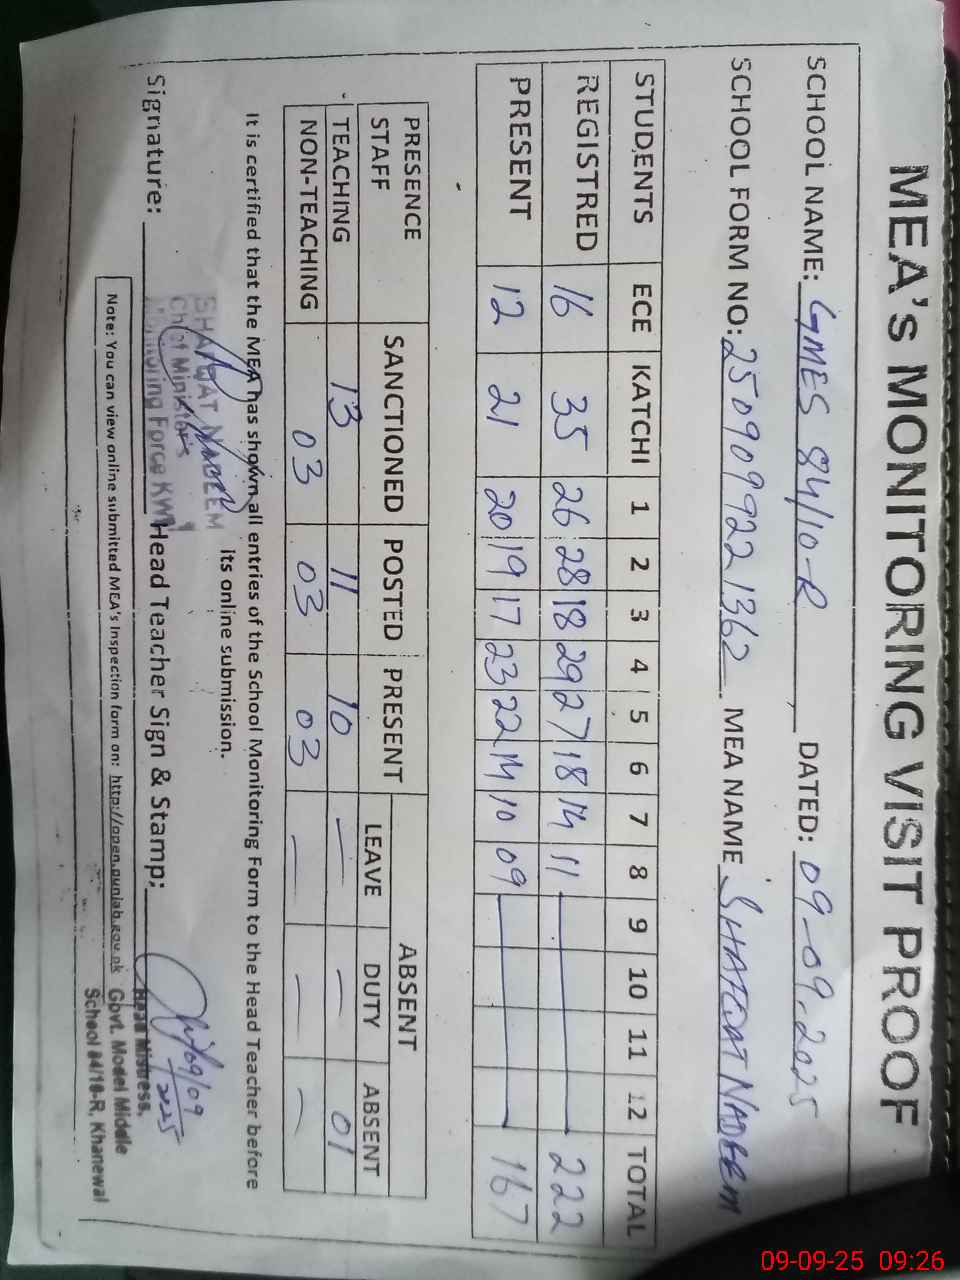 MEA's MONITORING VISIT PROOF
SCHOOL NAME: GMES 84/10-R DATED: 09-09-2025
SCHOOL FORM NO: 2509099221362 MEA NAME SHAFQAT NADEEM
STUDENTS ECE KATCHI 1 2 3 4 5 6 7 8 9 10 11 12 TOTAL
REGISTRED 16 35 26 28 18 29 27 18 14 11 222
PRESENT 12 21 20 19 17 23 22 14 10 09 167
PRESENCE STAFF SANCTIONED POSTED PRESENT ABSENT
LEAVE DUTY ABSENT
TEACHING 13 11 10 — — 01
NON-TEACHING 03 03 03 — — —
It is certified that the MEA has shown all entries of the School Monitoring Form to the Head Teacher before
its online submission.
SHAFQAT NADEEM
Chief Minister's
Monitoring Force KWL
Signature: Head Teacher Sign & Stamp:
09/09
2025
Head Mistress,
Govt. Model Middle
School 84/10-R, Khanewal
Note: You can view online submitted MEA's Inspection form on: http://open.punjab.gov.pk
09-09-25 09:26